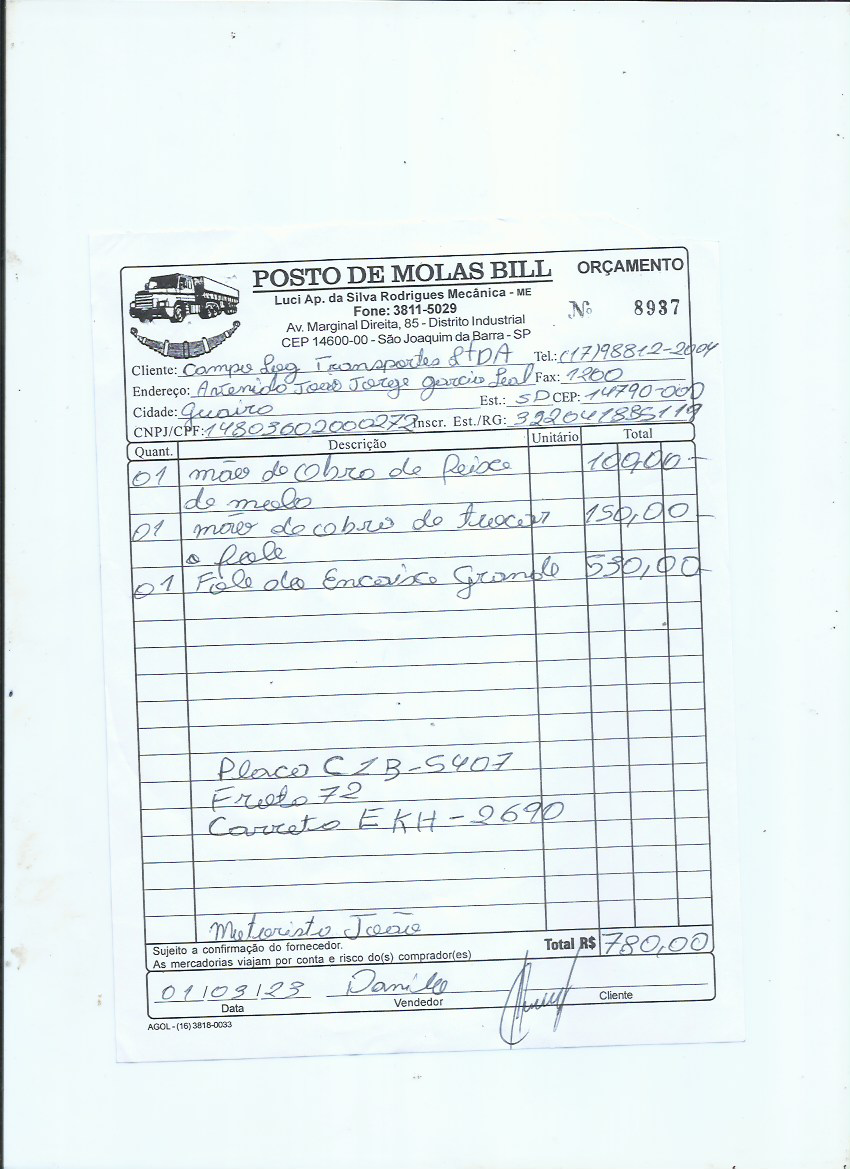 POSTO DE MOLAS BILL
ORÇAMENTO
Luci Ap. da Silva Rodrigues Mecânica - ME
Fone: 3811-5029
Nº 8937
Av. Marginal Direita, 85 - Distrito Industrial
CEP 14600-00 - São Joaquim da Barra - SP
Cliente: Campo Log Transportes LtDA Tel.: (17)98812-2004
Endereço: João Jorge Garcia Leal Fax: 1200
Cidade: Guaira Est.: SP CEP: 14790-000
CNPJ/CPF: 14803602000272 Inscr. Est./RG: 322041885119
Quant. Descrição Unitário Total
01 mão de obra de feixe 100,00
de mola
01 mão de obra de trocar 150,00
o fole
01 Fole do Encaixe Grande 530,00
Placa CZB-5407
Frota 72
Carreta EKH-2690
Motorista João
Sujeito a confirmação do fornecedor.
As mercadorias viajam por conta e risco do(s) comprador(es)
Total R$ 780,00
01/03/23 Danilo
Data Vendedor Cliente
AGOL - (16) 3818-0033